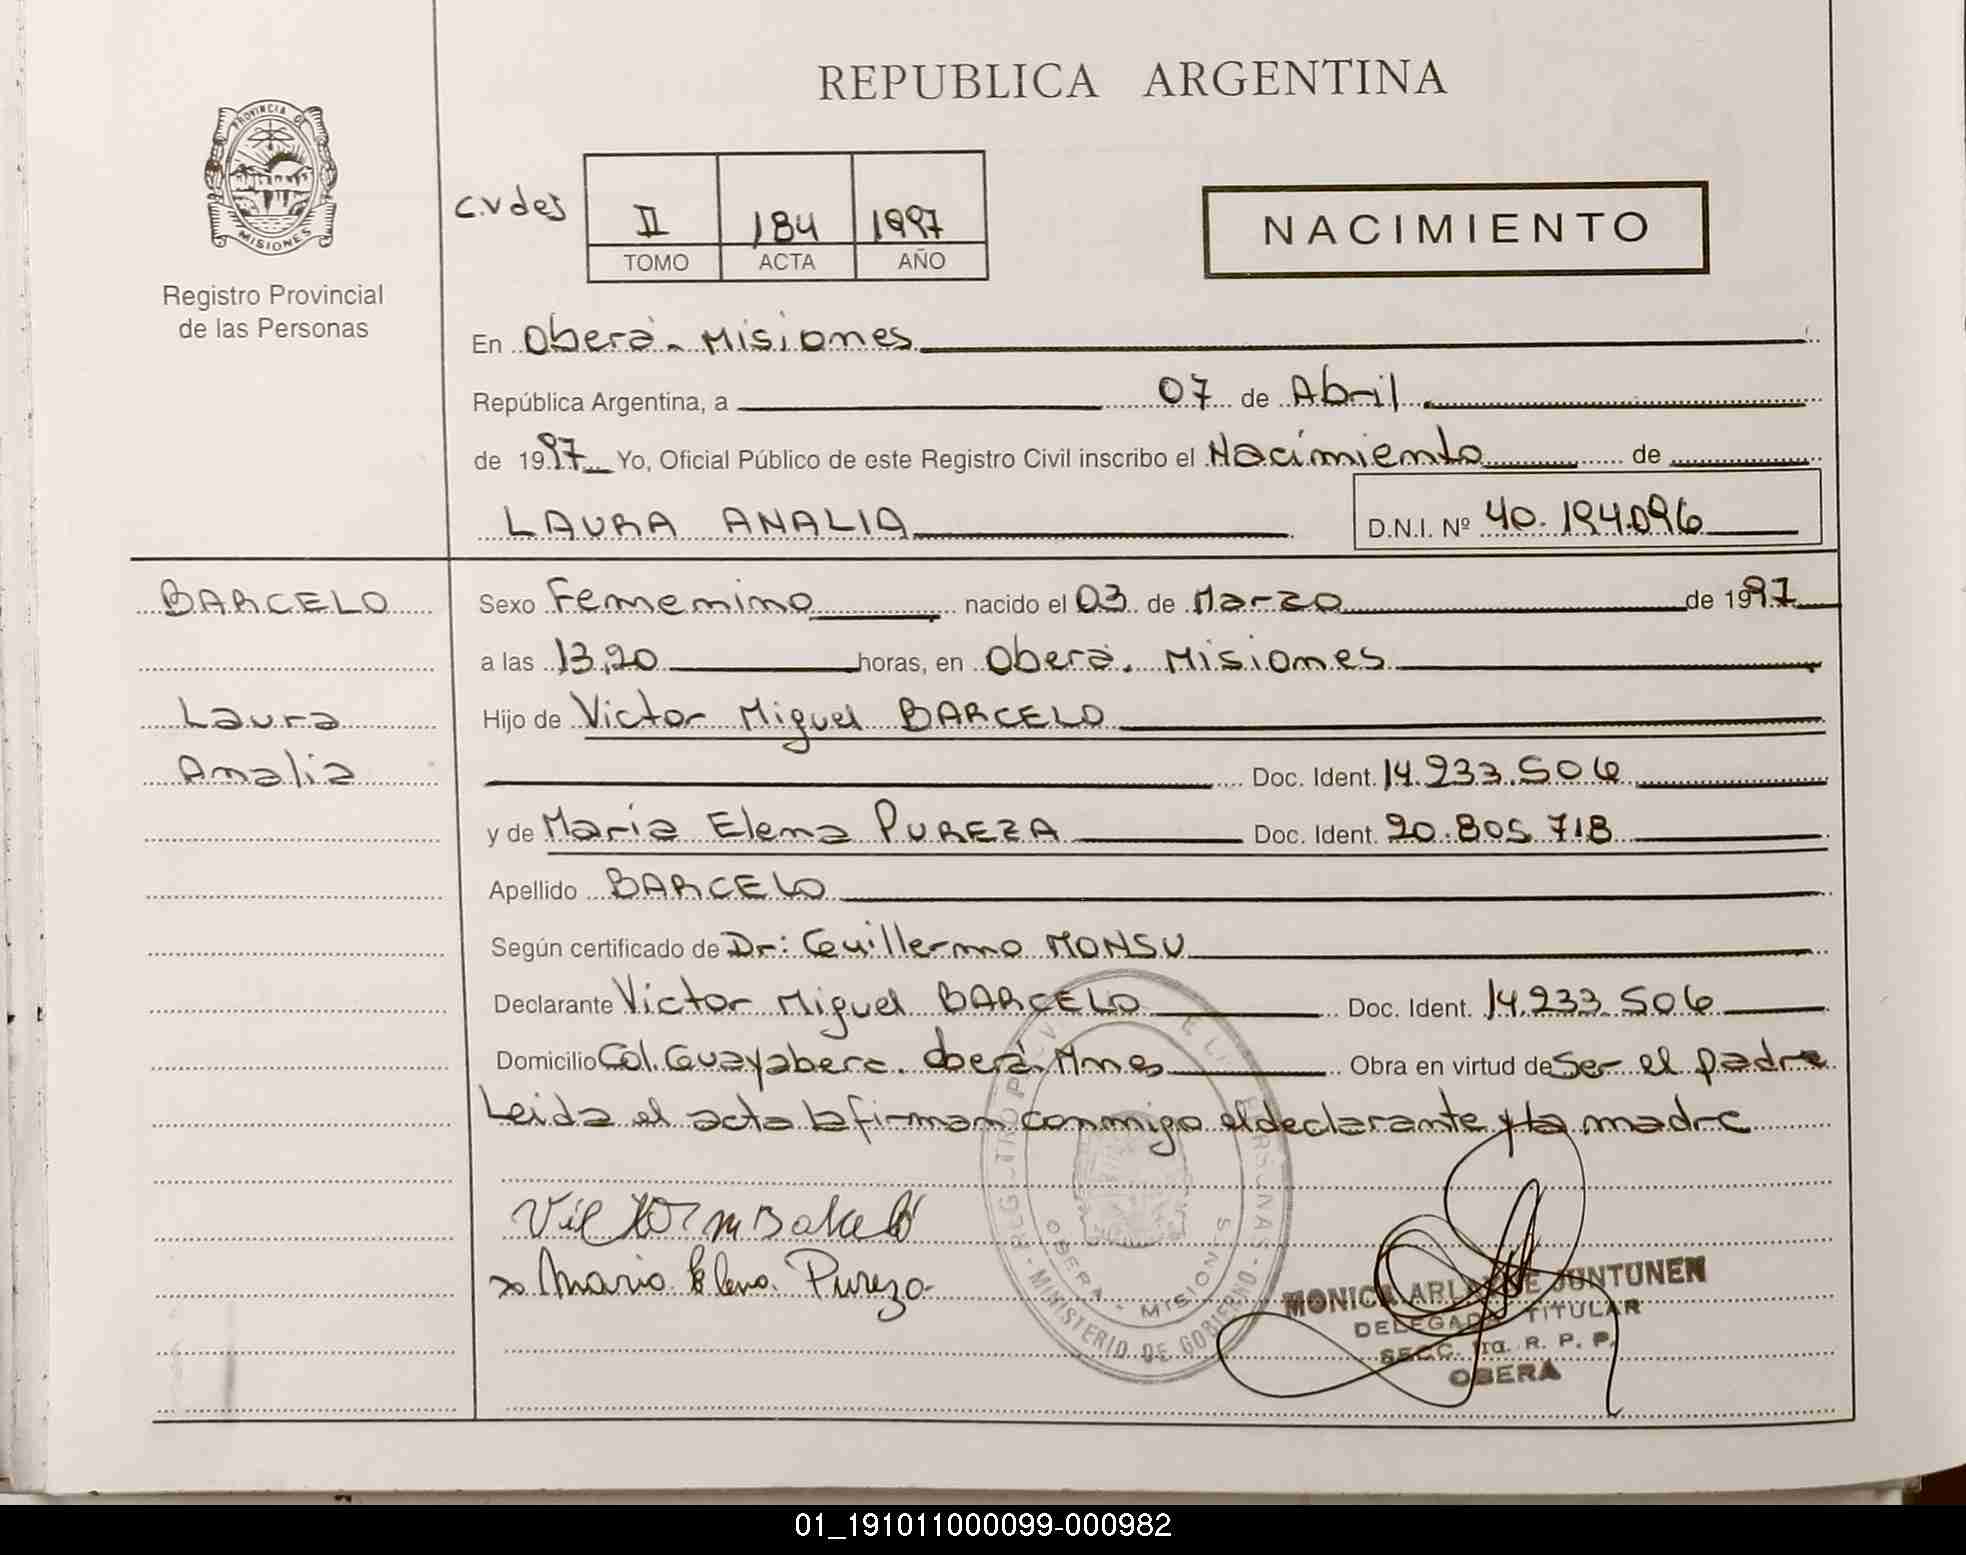 REPUBLICA ARGENTINA
PROVINCIA DE
MISIONES
Registro Provincial
de las Personas
C.V des
II 184 1997
TOMO ACTA AÑO
NACIMIENTO
En Oberá - Misiones
República Argentina, a 07 de Abril
de 1997 Yo, Oficial Público de este Registro Civil inscribo el Nacimiento de
LAURA ANALIA D.N.I. Nº 40.194.096
BARCELO
Laura
Analia
Sexo Femenino nacido el 03 de Marzo de 1997
a las 13,20 horas, en Oberá. Misiones
Hijo de Victor Miguel BARCELO
Doc. Ident. 14.233.506
y de María Elena PUREZA Doc. Ident. 20.805.718
Apellido BARCELO
Según certificado de Dr: Guillermo MONSU
Declarante Victor Miguel BARCELO Doc. Ident. 14.233.506
Domicilio Col. Guayabera. Oberá. Mnes Obra en virtud de Ser el padre
Leida el acta la firman conmigo el declarante y la madre
Victor M Barceló
x Maria Elena Pureza
OBERA - MISIONES
MINISTERIO DE GOBIERNO
MONICA JUNTUNEN
DELEGADA TITULAR
SECC. 1ra. R. P. P.
OBERA
01_191011000099-000982